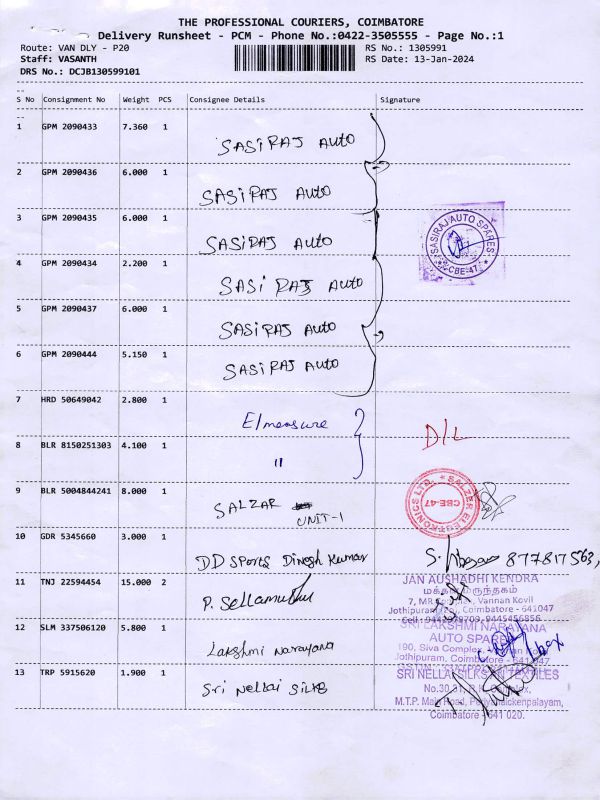 THE PROFESSIONAL COURIERS, COIMBATORE
Delivery Runsheet - PCM - Phone No.:0422-3505555 - Page No.:1
Route: VAN DLY - P20 RS No.: 1305991
Staff: VASANTH RS Date: 13-Jan-2024
DRS No.: DCJB130599101
S No Consignment No Weight PCS Consignee Details Signature
1 GPM 2090433 7.360 1 SASIRAJ AUTO
2 GPM 2090436 6.000 1 SASIRAJ AUTO
3 GPM 2090435 6.000 1 SASIRAJ AUTO
SASIRAJ AUTO SPARES
CBE-47
4 GPM 2090434 2.200 1 SASIRAJ AUTO
5 GPM 2090437 6.000 1 SASIRAJ AUTO
6 GPM 2090444 5.150 1 SASIRAJ AUTO
7 HRD 50649042 2.800 1 Elmeasure
D/L
8 BLR 8150251303 4.100 1 "
9 BLR 5004844241 8.000 1 SALZAR UNIT-1
SALZER ELECTRONICS LTD.
CBE-47
10 GDR 5345660 3.000 1 DD Sports Dinesh Kumar 877817563,
11 TNJ 22594454 15.000 2 P. Sellamuthu
JAN AUSHADHI KENDRA
மக்கள் மருந்தகம்
7, MR Complex, Vannan Kovil
Jothipuram Po., Coimbatore - 641047
12 SLM 337506120 5.800 1 Lakshmi Narayana
SRI LAKSHMI NARAYANA
AUTO SPARES
190, Siva Complex,
Jothipuram, Coimbatore - 641047
13 TRP 5915620 1.900 1 Sri Nellai Silks
SRI NELLAI SILKS AN TEXTILES
M.T.P. Main Road, Periyanaickenpalayam,
Coimbatore - 641 020.